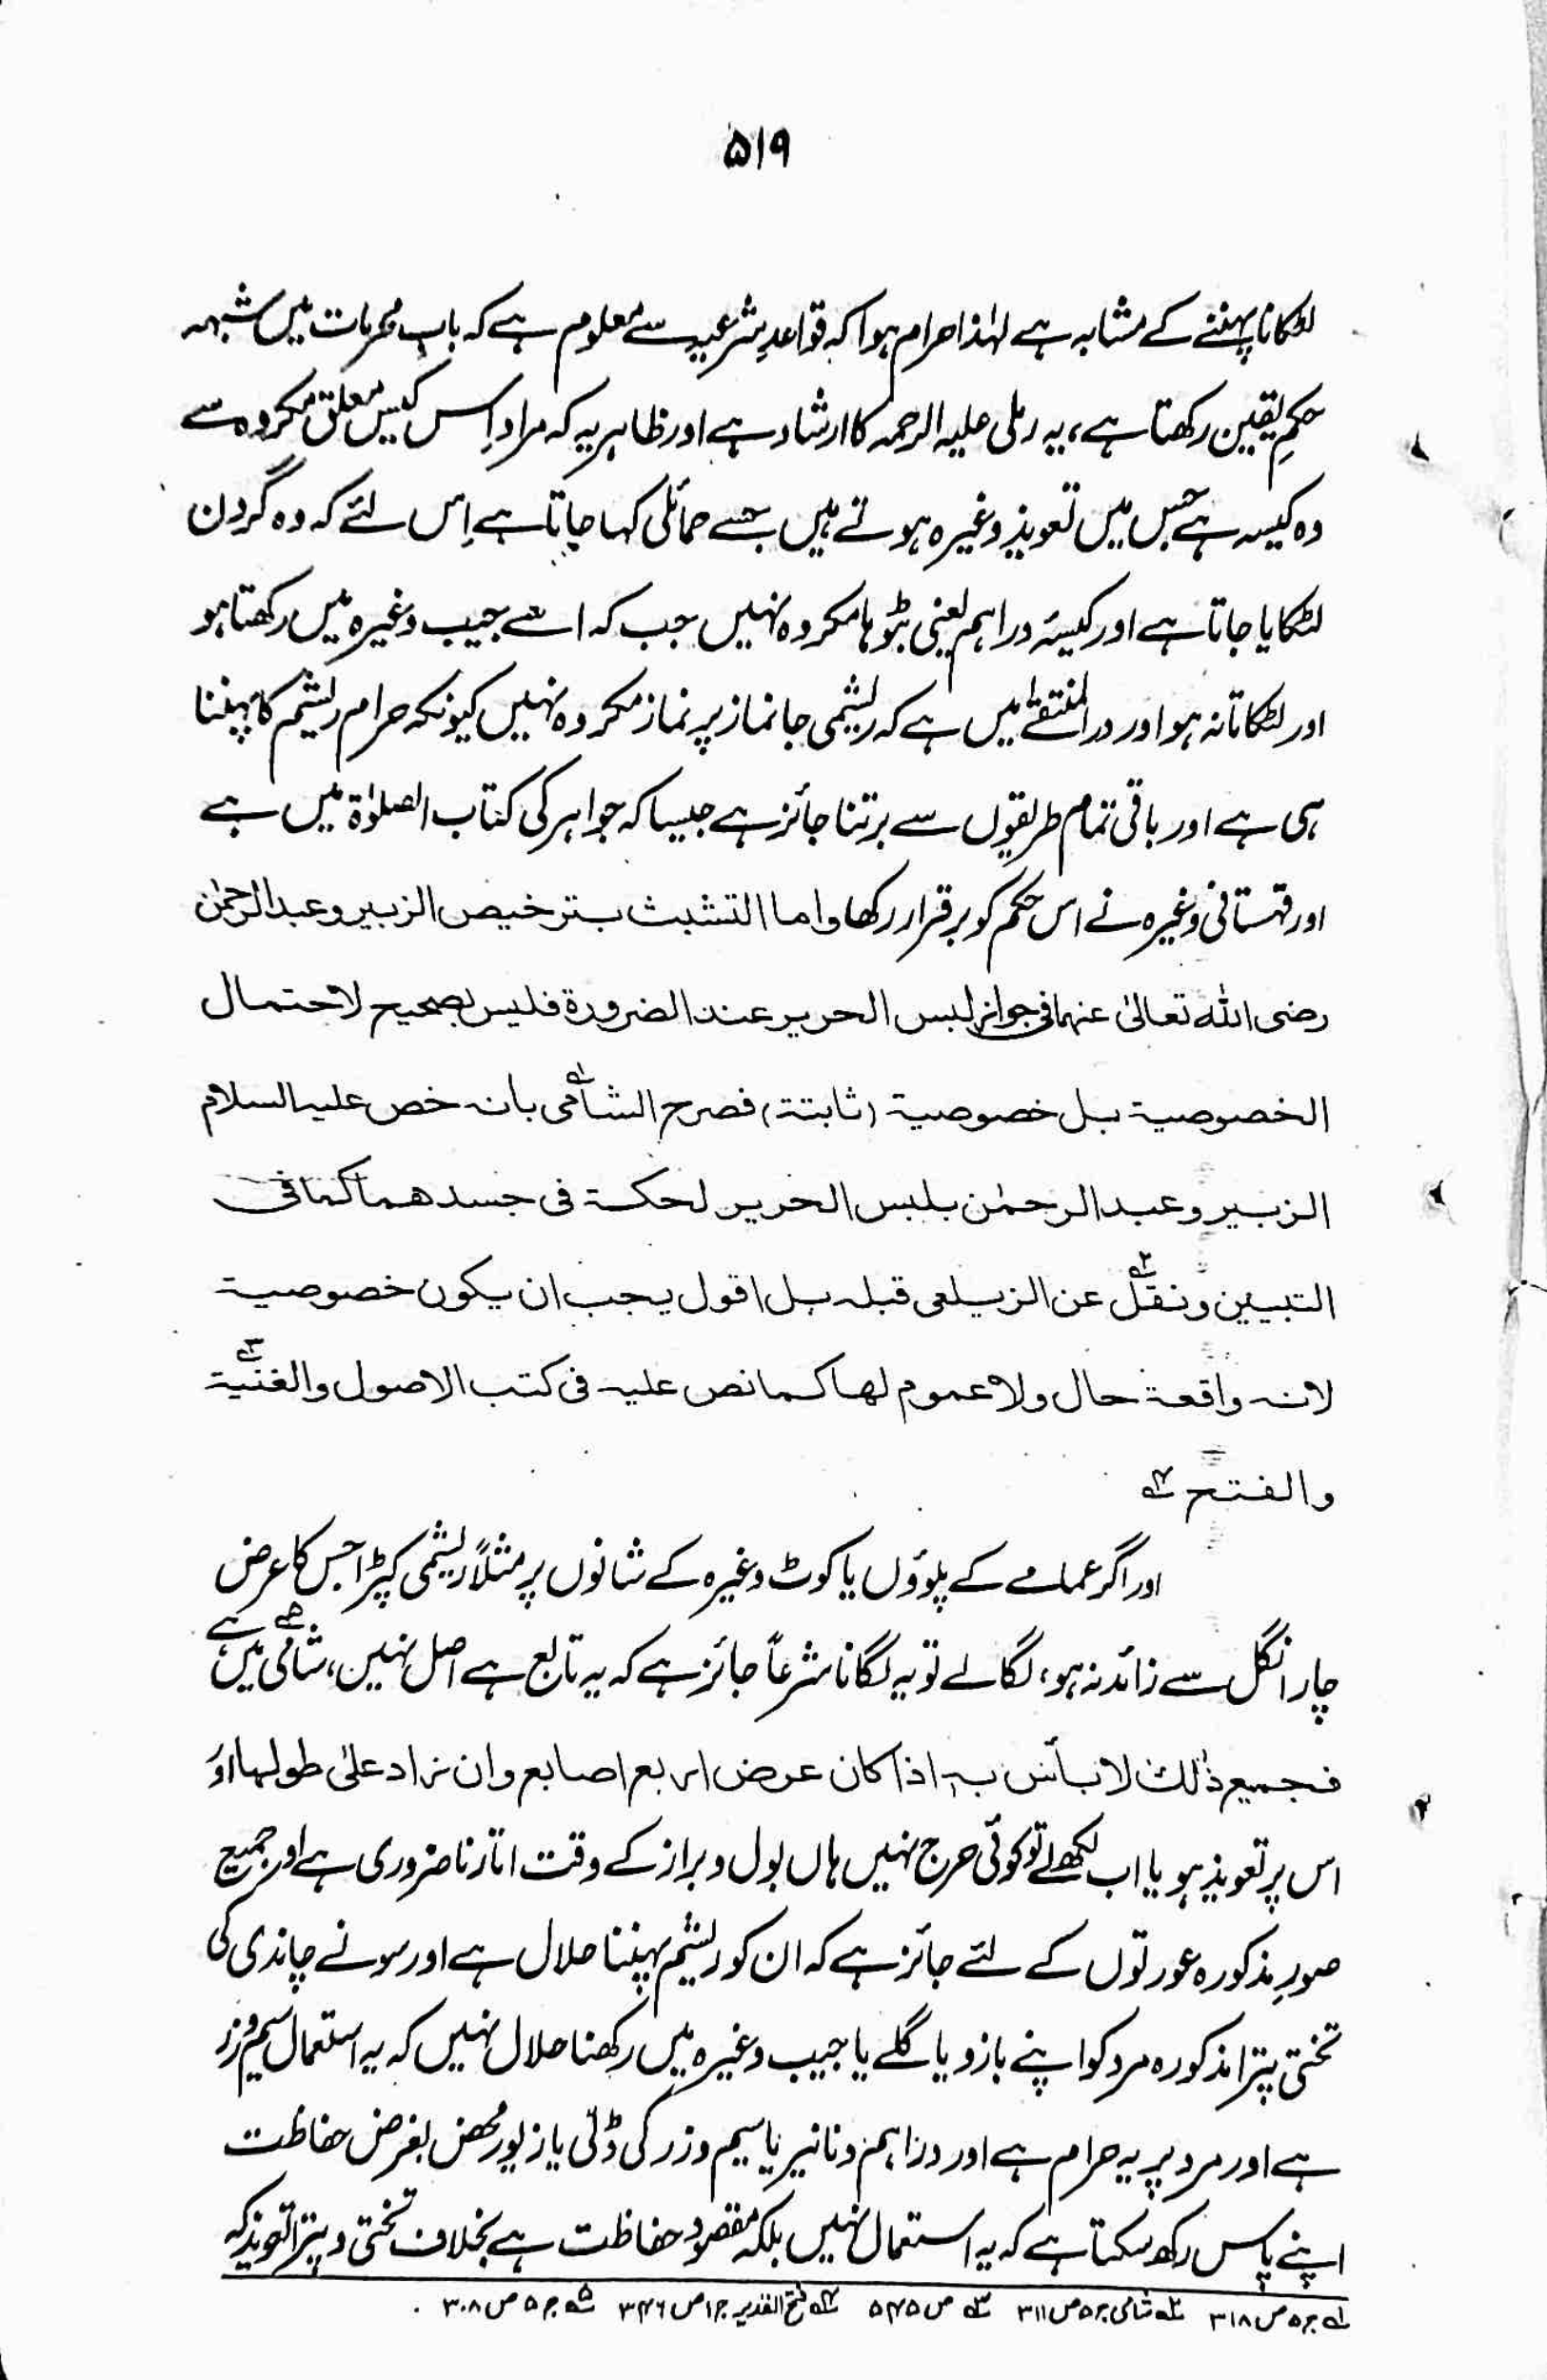 ۵۱۹
لٹکانا پہننے کے مشابہ ہے لہٰذا حرام ہوا کہ قواعدِ شرعیہ سے معلوم ہے کہ بابِ محرمات میں شبہہ
حکمِ یقین رکھتا ہے، یہ رملی علیہ الرحمہ کا ارشاد ہے اور ظاہر یہ کہ مراد اِس کیس معلق مکروہ سے
وہ کیسہ ہے جس میں تعویذ وغیرہ ہوتے ہیں جسے حمائلی کہا جاتا ہے اِس لئے کہ وہ گردن
لٹکایا جاتا ہے اور کیسۂ دراہم یعنی بٹوہا مکروہ نہیں جب کہ اسے جیب وغیرہ میں رکھتا ہو
اور لٹکاتا نہ ہو اور درالمنتقیٰ میں ہے کہ ریشمی جانماز پر نماز مکروہ نہیں کیونکہ حرام ریشم کا پہننا
ہی ہے اور باقی تمام طریقوں سے برتنا جائز ہے جیسا کہ جواہر کی کتاب الصلوٰۃ میں ہے
اور قہستانی وغیرہ نے اس حکم کو برقرار رکھا واما التشبث بترخیص الزبیر وعبدالرحمٰن
رضی اللہ تعالیٰ عنہما فی جواز لبس الحریر عند الضرورۃ فلیس بصحیح لاحتمال
الخصوصیۃ بل خصوصیۃ (ثابتۃ) فصرح الشامی۱؎ بانہ خص علیہ السلام
الزبیر وعبد الرحمٰن بلبس الحریر لحکۃ فی جسدھما کما فی
التبیین ونقل۲؎ عن الزیلعی قبلہ بل اقول یجب ان یکون خصوصیۃ
لانہ واقعۃ حال ولا عموم لھا کما نص علیہ فی کتب الاصول والغنیۃ۳؎
والفتح ۴؎
اور اگر عمامے کے پلوؤں یا کوٹ وغیرہ کے شانوں پر مثلاً ریشمی کپڑا جس کا عرض
چار انگل سے زائد نہ ہو، لگالے تو یہ لگانا شرعاً جائز ہے کہ یہ تابع ہے اصل نہیں، شامی۵؎ میں ہے
فجمیع ذٰلک لا باس بہ اذا کان عرض اربع اصابع وان زاد علیٰ طولہا اور
اس پر تعویذ ہو یا اب لکھے تو کوئی حرج نہیں ہاں بول وبراز کے وقت اتارنا ضروری ہے اور جمیع
صورِ مذکورہ عورتوں کے لئے جائز ہے کہ ان کو ریشم پہننا حلال ہے اور سونے چاندی کی
تختی پترا مذکورہ مرد کو اپنے بازو یا گلے یا جیب وغیرہ میں رکھنا حلال نہیں کہ یہ استعمال سیم وزر
ہے اور مرد پر یہ حرام ہے اور دراہم ودنانیر یا سیم وزر کی ڈلی یا زیور محض بغرض حفاظت
اپنے پاس رکھ سکتا ہے کہ یہ استعمال نہیں بلکہ مقصود حفاظت ہے بخلاف تختی و پترا تعویذ کہ
۱؎ ج ۵ ص ۳۱۸ ۲؎ شامی ج ۵ ص ۳۱۱ ۳؎ ص ۵۴۵ ۴؎ فتح القدیر ج ۱ ص ۳۴۶ ۵؎ ج ۵ ص ۳۰۸